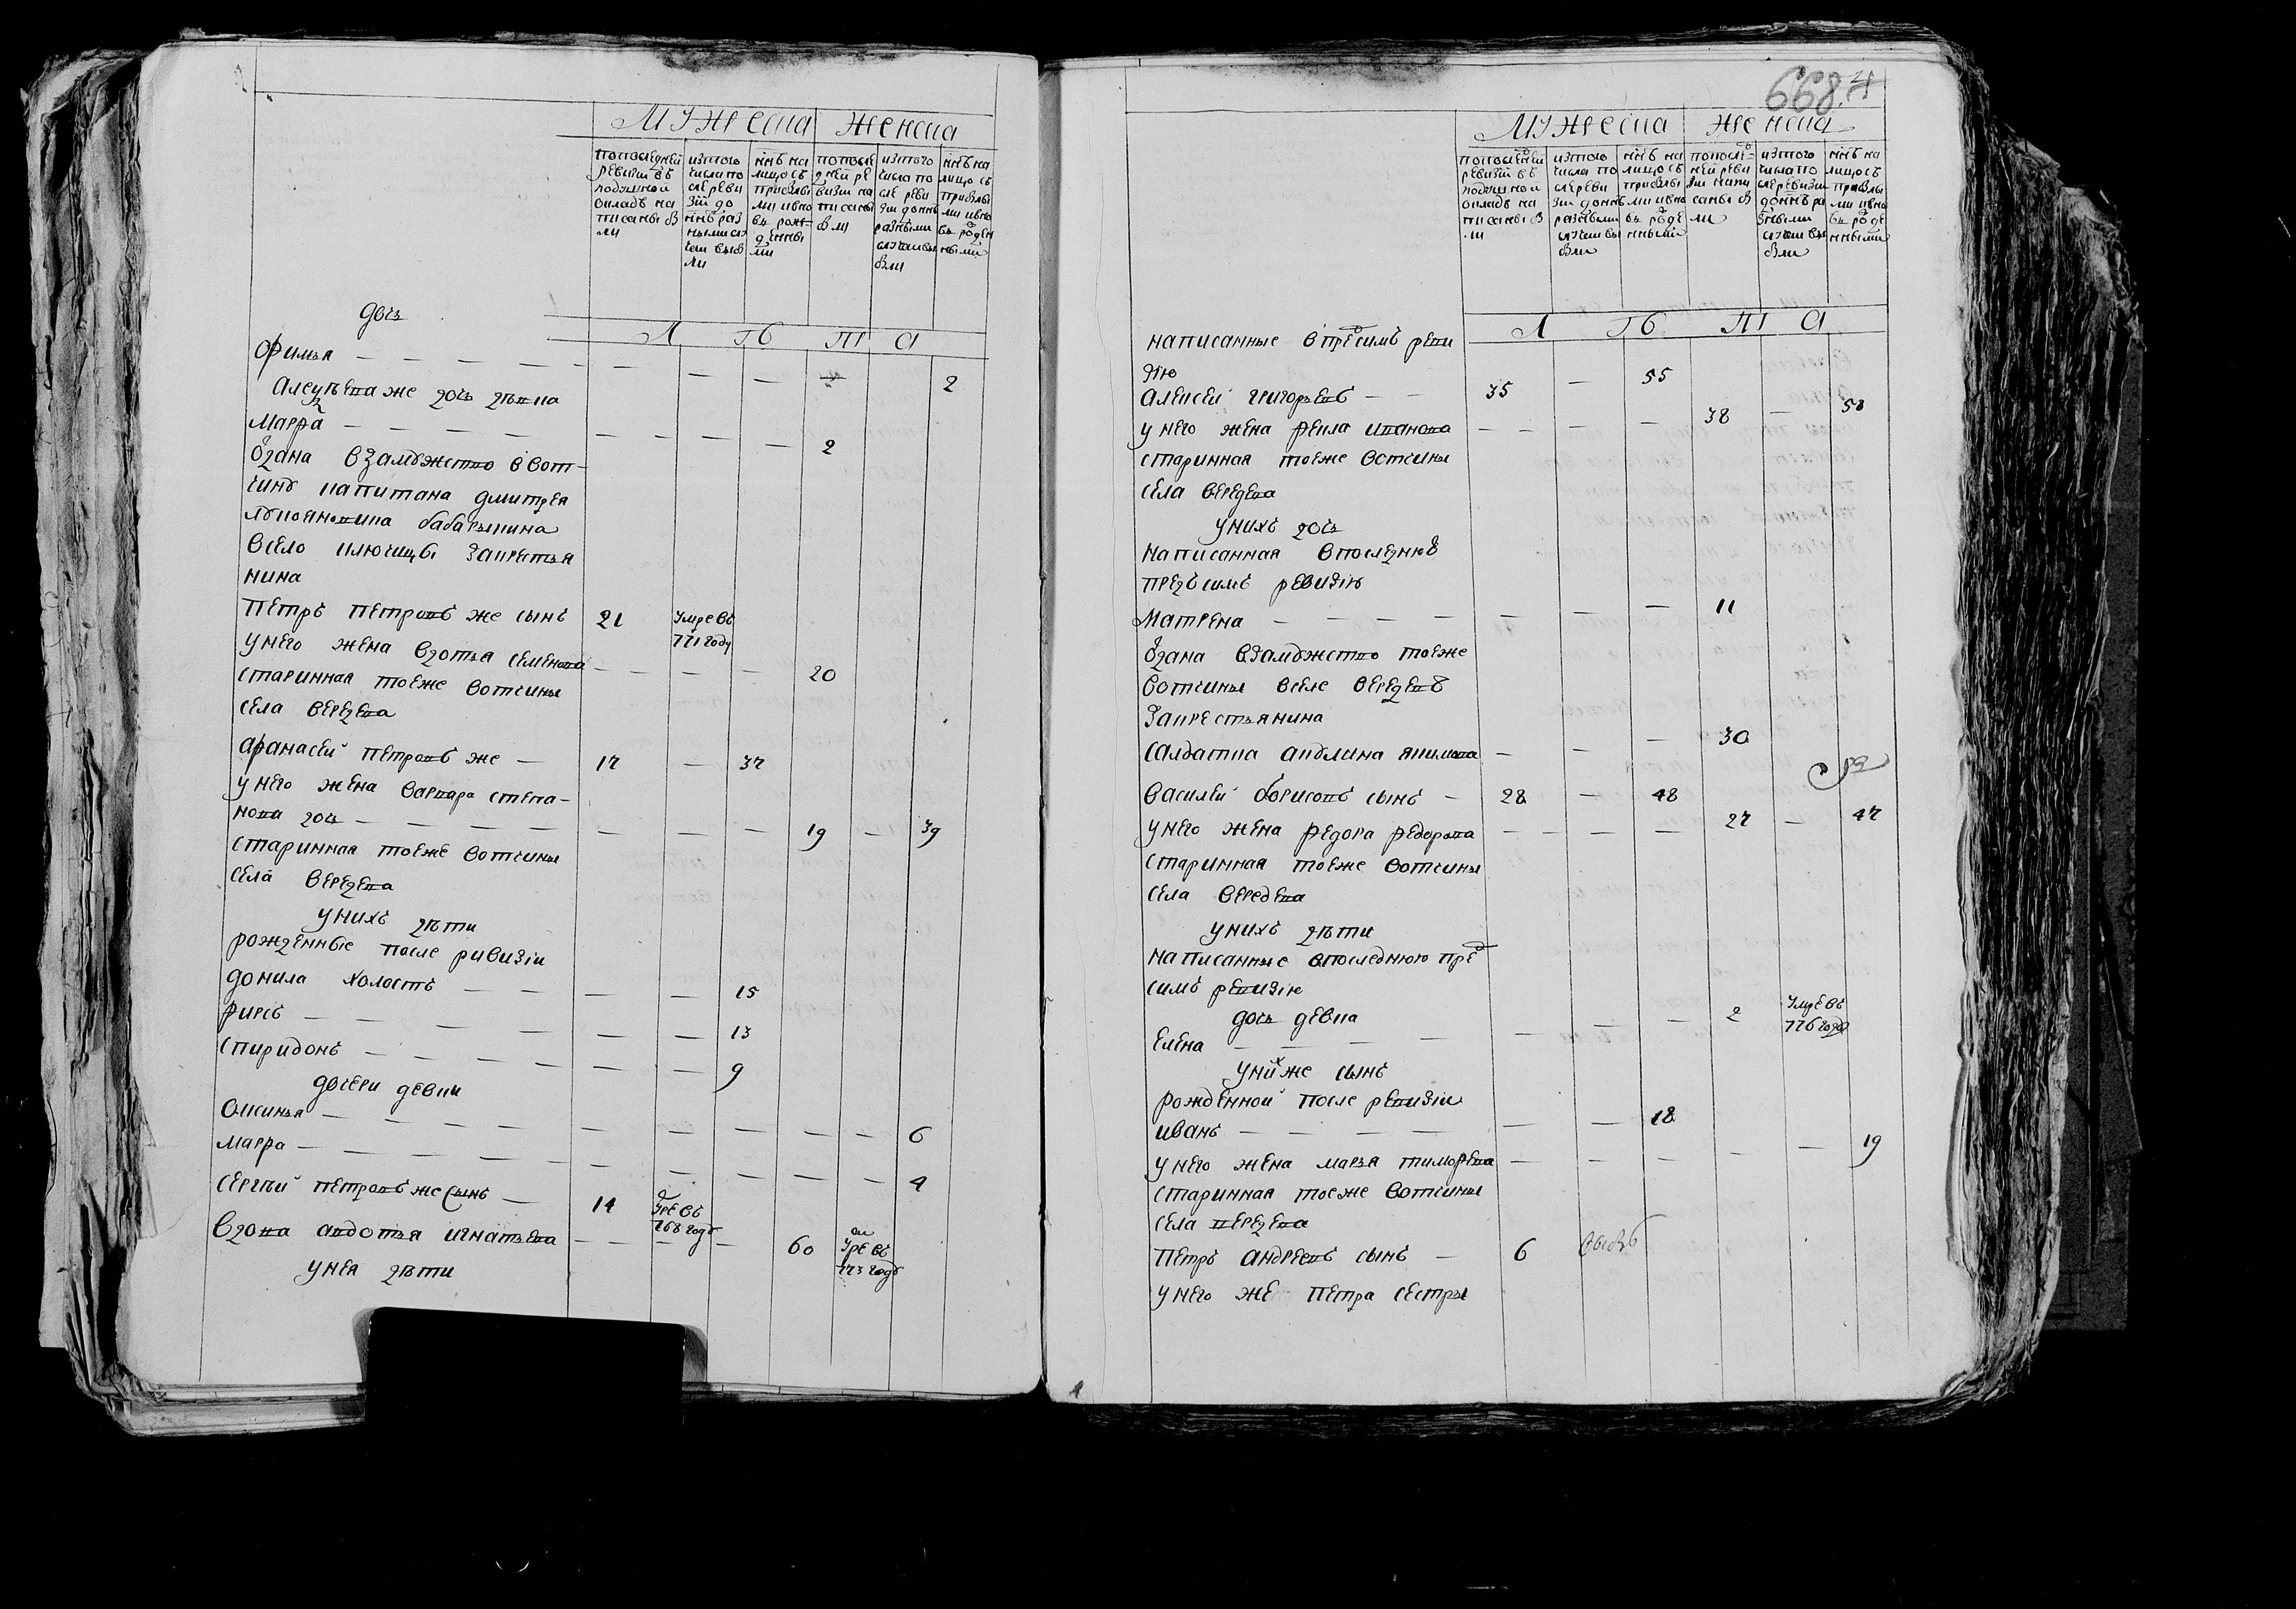 мужеска женска
по последней ревизіи въ подушной окладъ написаны были
изтого числа после ревизіи до нынѣ разными случаи выбыли
нынѣ на лицо съ прибылыми и вновь рожденными
по последней ревизіи написаны были
изтого числа после ревизіи до нынѣ разными случаи выбыли
нынѣ на лицо съ прибылыми и вновь рожденными
дочь
Л ѣ т а
Офимья — — — — — — — — 2
же дочь девка
Марфа — — — — — — — — 2
одана взамужство ввот
чину капитана дмитрея
бабарыкина
всело ключищы закрестья
нина
Петръ петровъ же сынъ 21 умре въ
771 году
унего жена вдотья семенова — — — 20
старинная тоеже вотчины
села вередева
афанасей петровъ же — 17 — 37
унего жена варвара степа-
нова дочь — — — — — — — 19 — 39
старинная тоеже вотчины
села вередева
унихъ дѣти
рожденные после ривизіи
донила холостъ — — — — 15
фирсъ — — — — — — 13
спиридонъ — — — — — — 9
дочери девки
Оксинья — — — — — — — — — 6
марфа — — — — — — — — — 4
сергѣй петровъ же сынъ — 14 умре въ
768 году
вдова авдотья игнатьева — — — 60 умре въ
773 году
унея дѣти
668
мужеска женска
по последней ревизіи въ подушной окладъ написаны были
изтого числа после ревизіи до нынѣ разными случаи выбыли
нынѣ на лицо съ прибылыми и вновь рожденными
по последней ревизіи написаны были
изтого числа после ревизіи до нынѣ разными случаи выбыли
нынѣ на лицо съ прибылыми и вновь рожденными
Л ѣ т а
написанные впредсимъ реви
зію
алексей григорьевъ — — 35 — 55
унего жена фекла иванова — — — — 38 — 58
старинная тоеже вотчины
села вередева
унихъ дочь
написанная впоследнюю
предъсимъ ревизію
матрена — — — — — — — 11
одана взамужство тоеже
вотчины вселе вередеве
закрестьянина
салдатка акулина якимова — — — 30
василей борисовъ сынъ — 28 — 48
унего жена федора федорова — — — — 27 — 47
старинная тоеже вотчины
села вередева
унихъ дѣти
написанные впоследнюю пред
симъ ревизію
дочь девка
елена — — — — — — — 2 умре въ
776 году
унихже сынъ
рожденной после ревизіи
иванъ — — — — — — 18
унего жена марья тимофева — — — — — 19
старинная тоеже вотчины
села вередева
петръ андреевъ сынъ — 6
унего же петра сестры